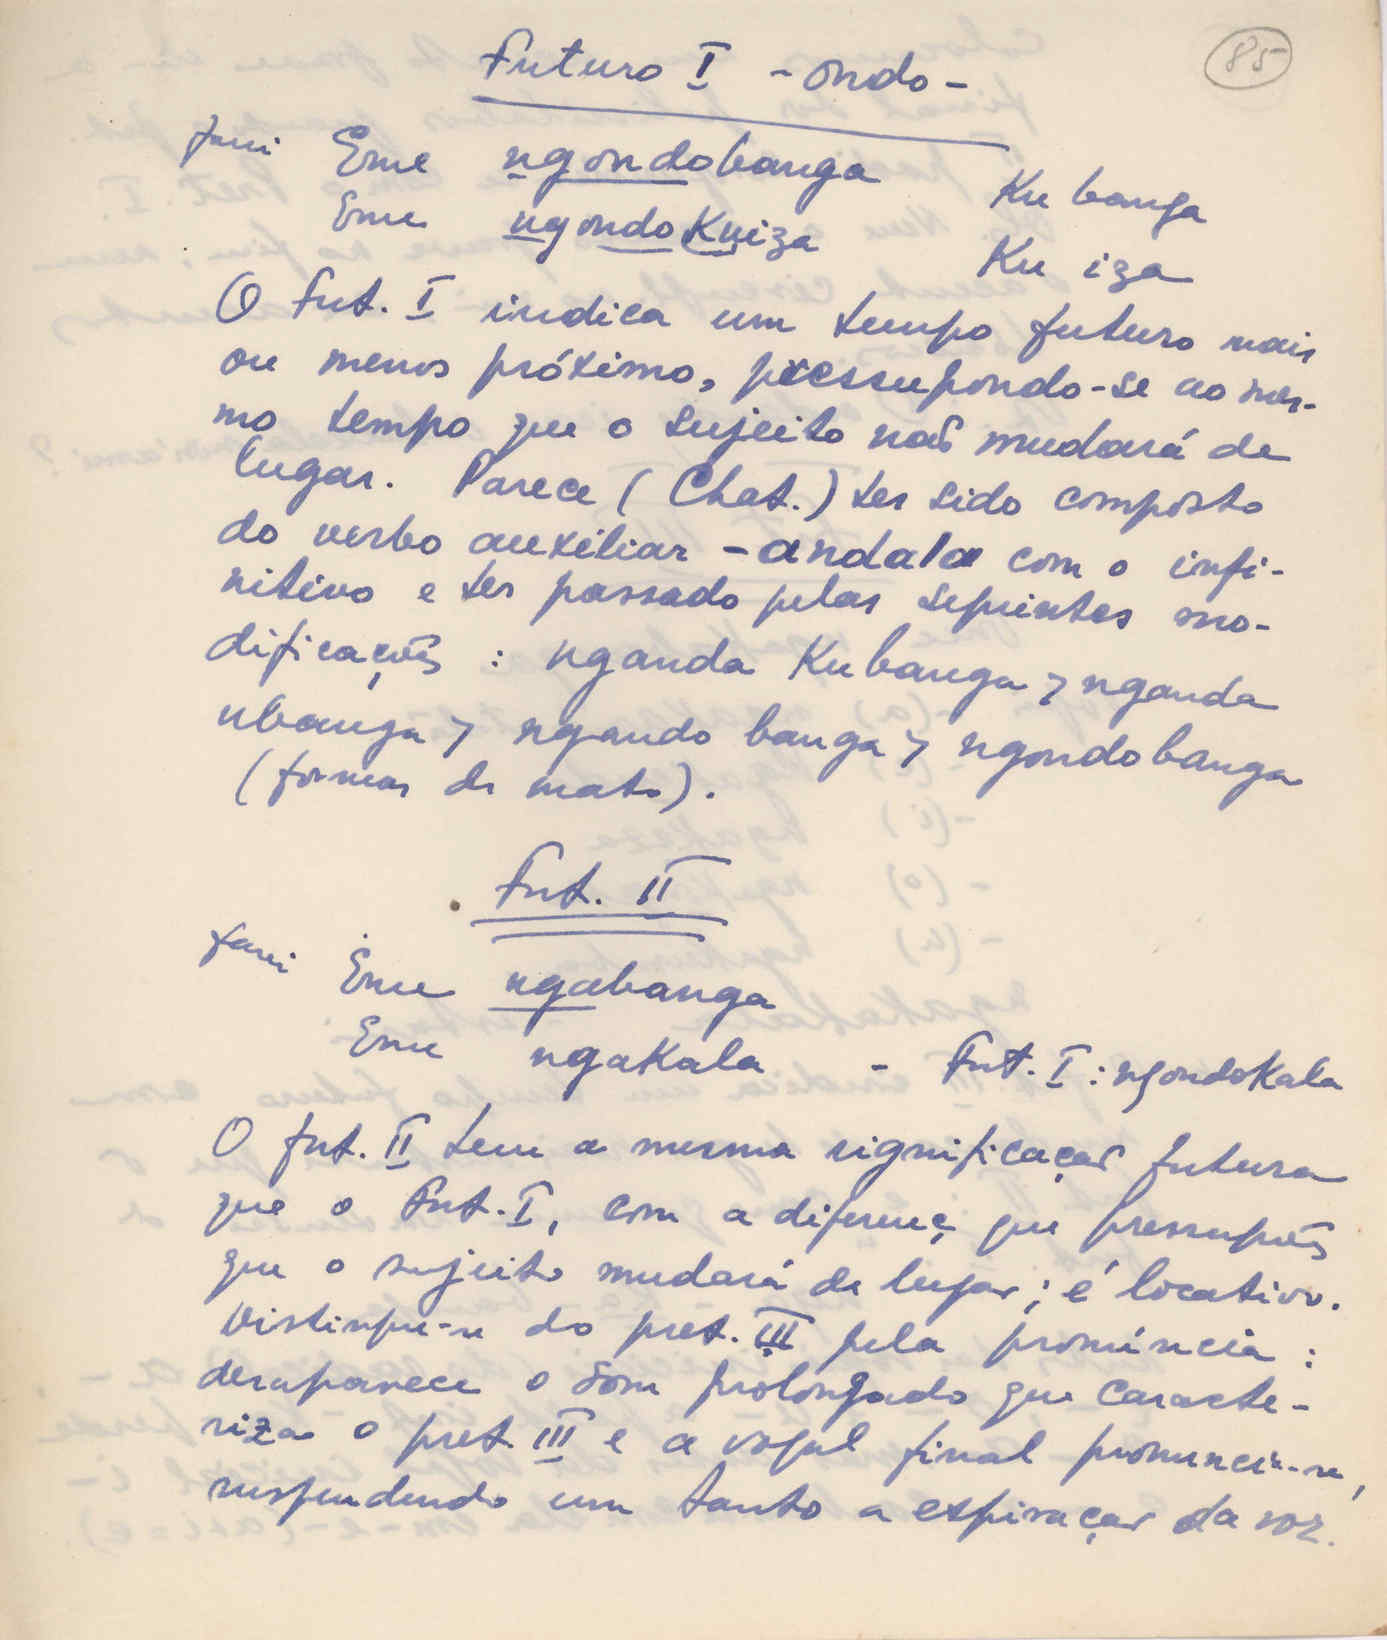 85
Futuro I - ondo -
farei Eme ngondobanga Ku banga
Eme ngondokuiza Ku iza
O Fut. I indica um tempo futuro mais
ou menos próximo, pressupondo-se ao mes-
mo tempo que o sujeito não mudará de
lugar. Parece (Chat.) ter sido composto
do verbo auxiliar -andala com o infi-
nitivo e ter passado pelas seguintes mo-
dificações : nganda Kubanga > nganda
ubanga > ngando banga > ngondobanga
(formas do mato).
Fut. II
farei Eme ngabanga
Eme ngakala - Fut. I : ngondokala
O fut. II tem a mesma significação futura
que o Fut. I, com a diferenç que pressupõe
que o sujeito mudará de lugar; é locativo.
Distingue-se do pret. III pela pronúncia :
desaparece o som prolongado que caracte-
riza o pret. III e a vogal final pronuncia-se,
suspendendo um tanto a expiração da voz.